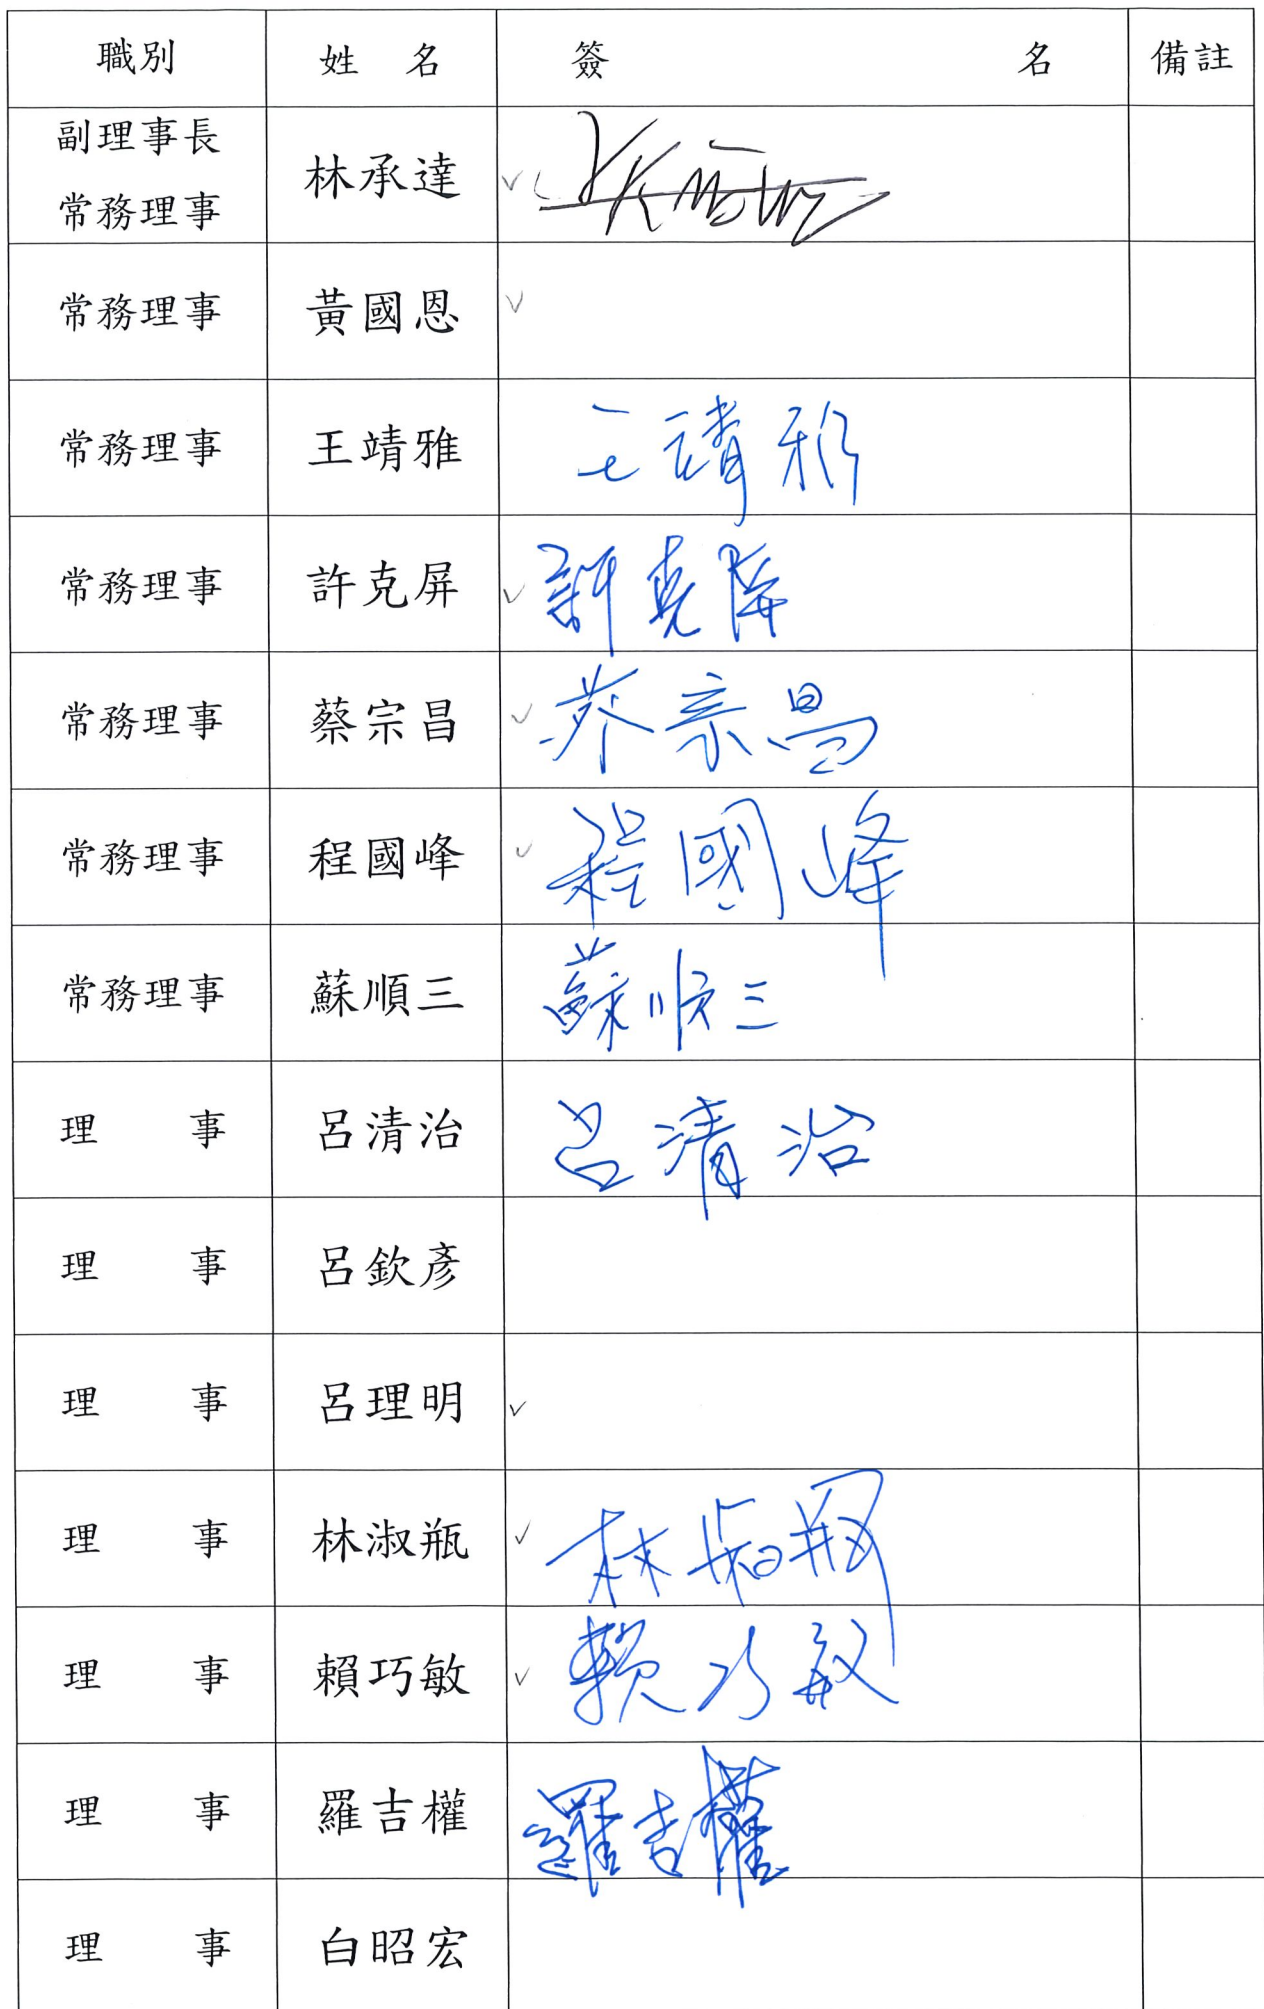 職別 姓名 簽名 備註
副理事長
常務理事 林承達
常務理事 黃國恩
常務理事 王靖雅 王靖雅
常務理事 許克屏 許克屏
常務理事 蔡宗昌 蔡宗昌
常務理事 程國峰 程國峰
常務理事 蘇順三 蘇順三
理事 呂清治 呂清治
理事 呂欽彥
理事 呂理明
理事 林淑瓶 林淑瓶
理事 賴巧敏 賴巧敏
理事 羅吉權 羅吉權
理事 白昭宏